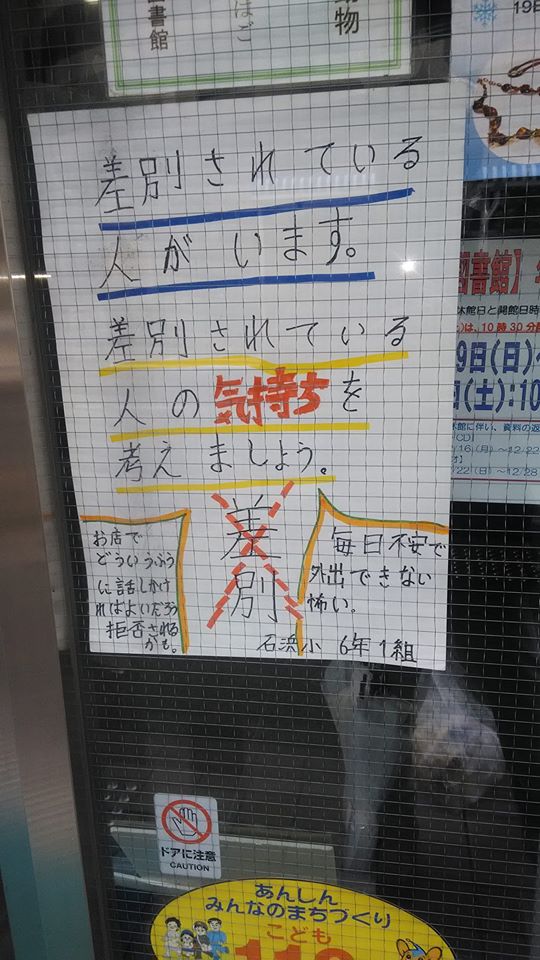 書館
ほご
動物
19日
差別されている
人がいます。
差別されている
人の気持ちを
考えましょう。
差別
お店で
どういうふう
に話しかけ
ればよいだろう
拒否される
かも。
毎日不安で
外出できない
怖い。
石浜小 6年1組
図書館】
休館日と開館日時
は、10時30分
9日(日)~
(土):10
休館に伴い、資料の返
CD】
/16(月)~12/22
/22(日)~12/28
ドアに注意
CAUTION
あんしん
みんなのまちづくり
こども
110